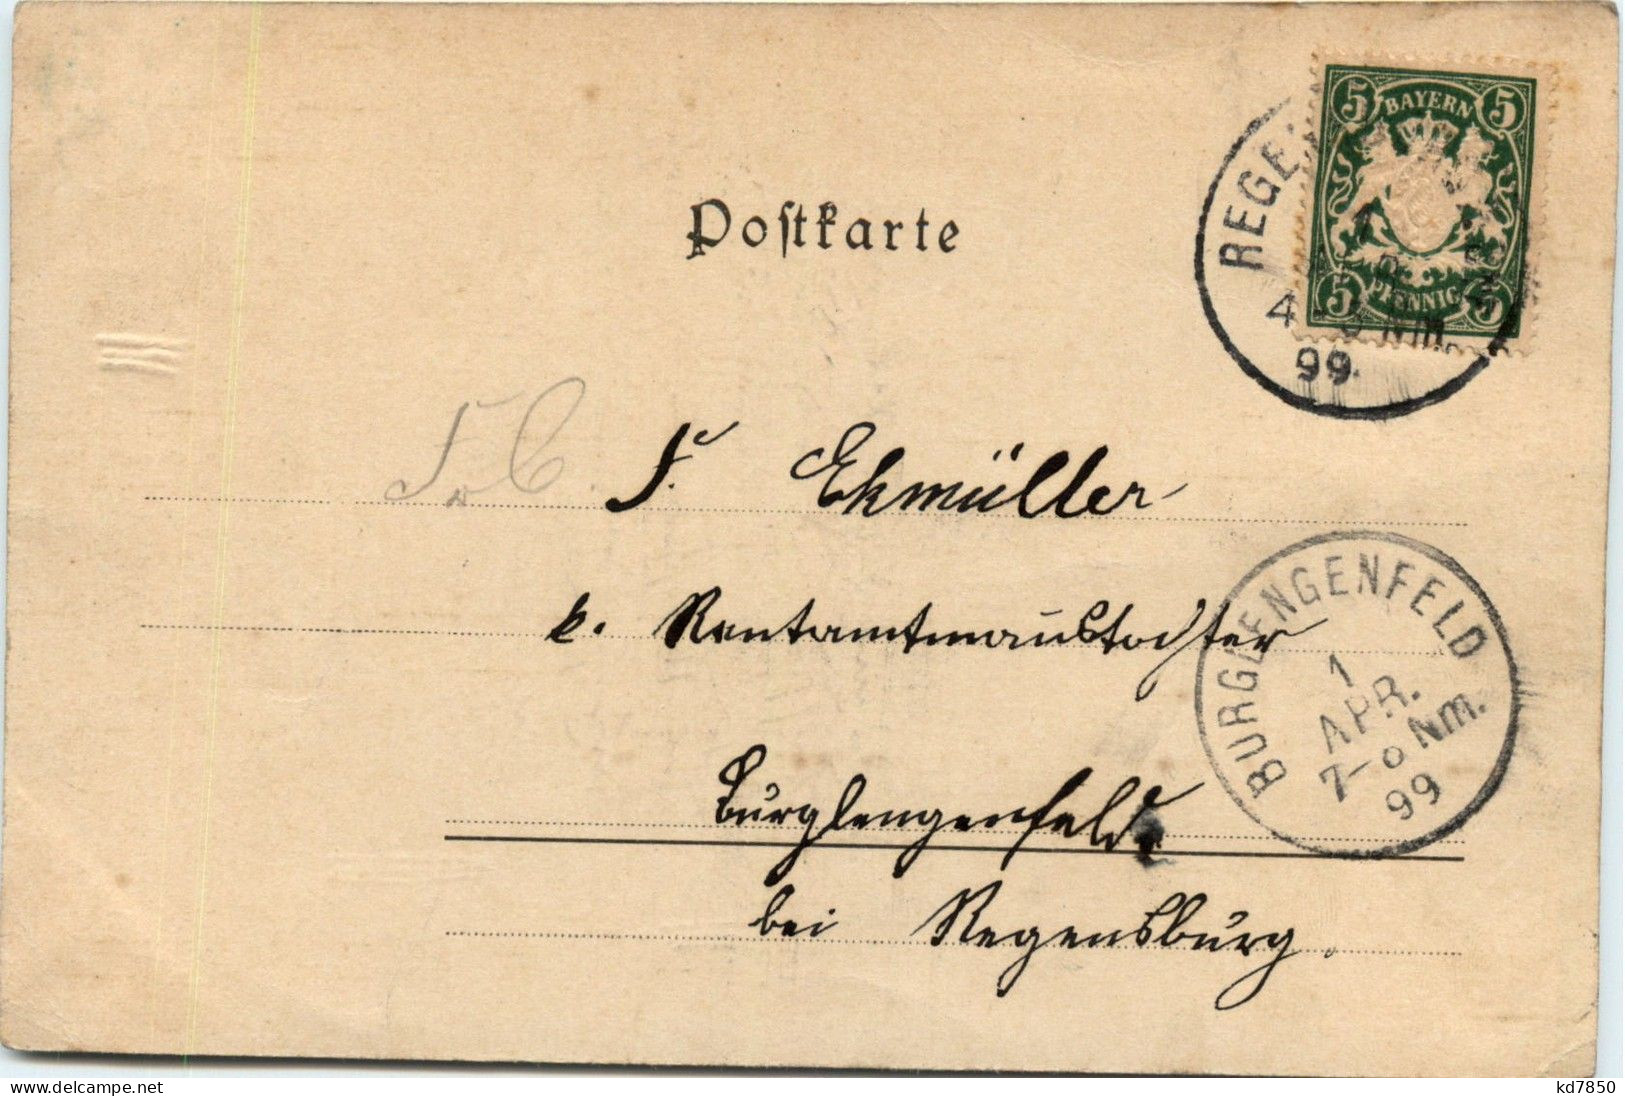 5 BAYERN 5
5 PFENNIG 5
REGE
1
4 NM.
99.
Postkarte
F. Ekmüller
k. Rentamtmannstochter
BURGLENGENFELD
1
APR.
7-8 NM.
99
Burglengenfeld
bei Regensburg.
www.delcampe.net
kd7850